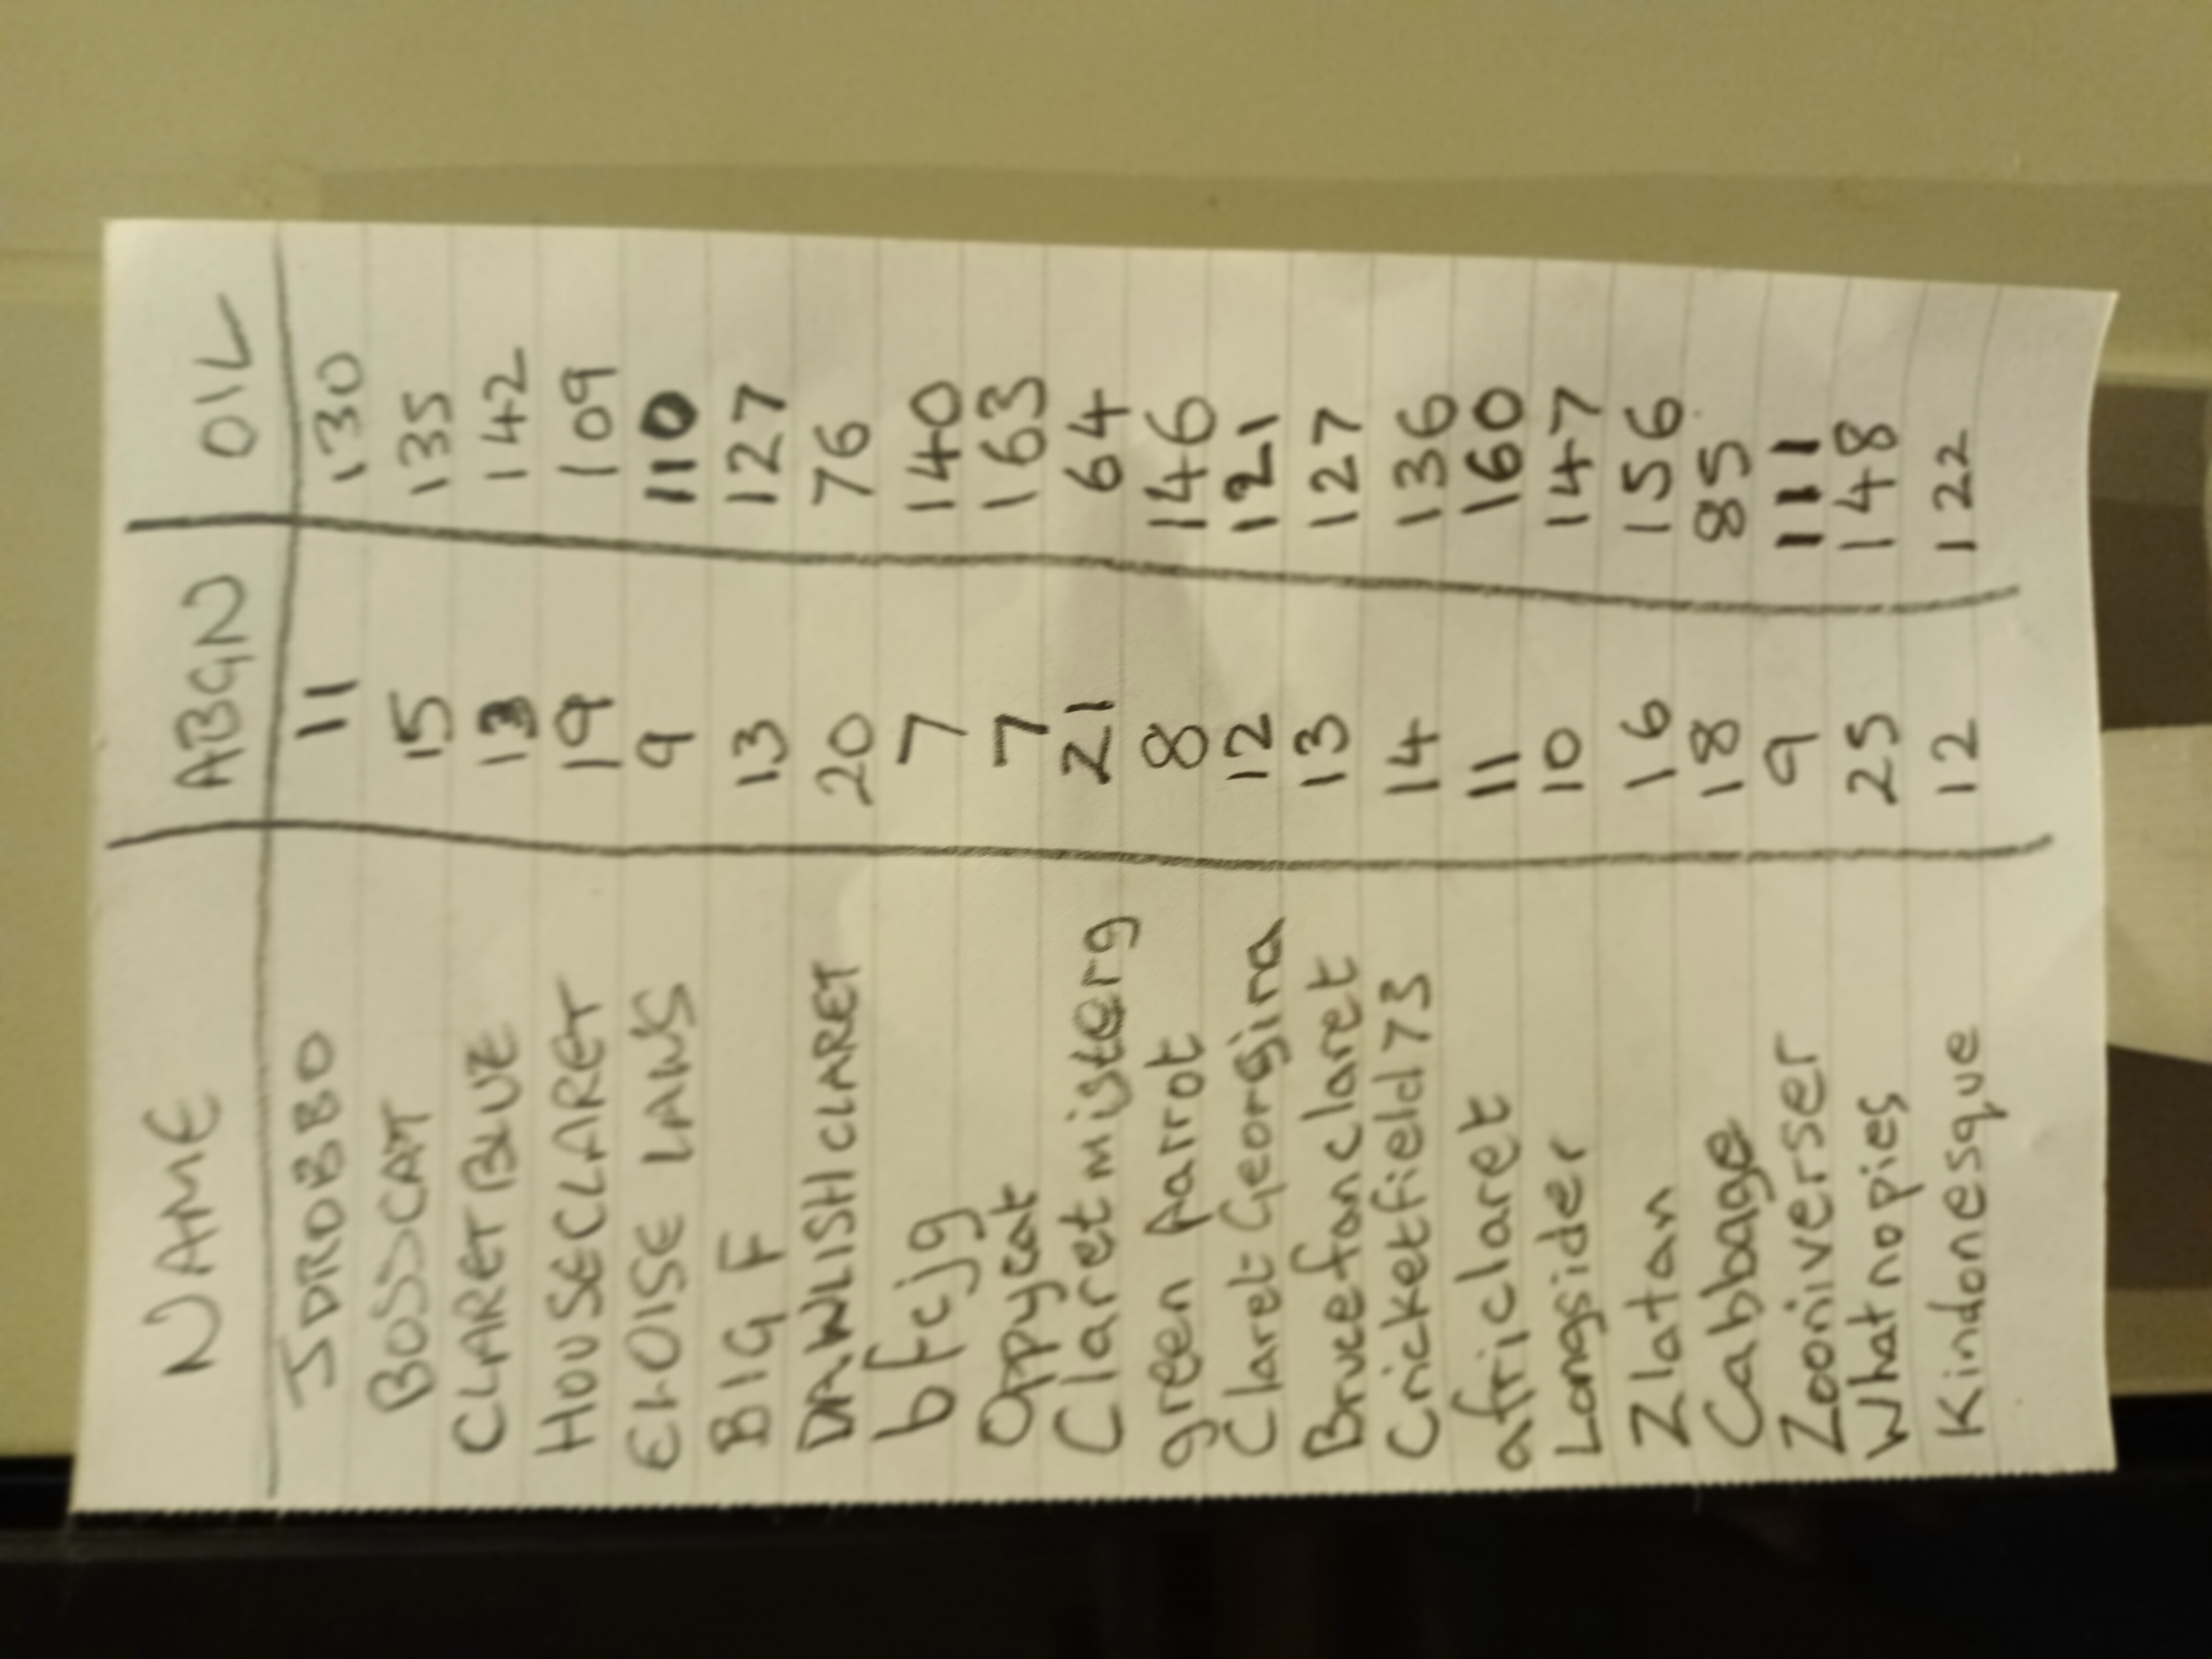 NAME ABGN OIL
JDROBBO 11 130
BOSSCAT 15 135
CLARETBLUE 13 142
HOUSECLARET 19 109
ELOISE LAWS 9 110
BIG F 13 127
DAWLISHCLARET 20 76
bfcjg 7 140
Oppycat 7 163
Claretmisterg 21 64
green parrot 8 146
Claret Georgina 12 121
Brucefanclaret 13 127
Cricketfield73 14 136
africlaret 11 160
Longsider 10 147
Zlatan 16 156
Cabbage 18 85
Zooniverser 9 111
Whatnopies 25 148
Kindonesque 12 122